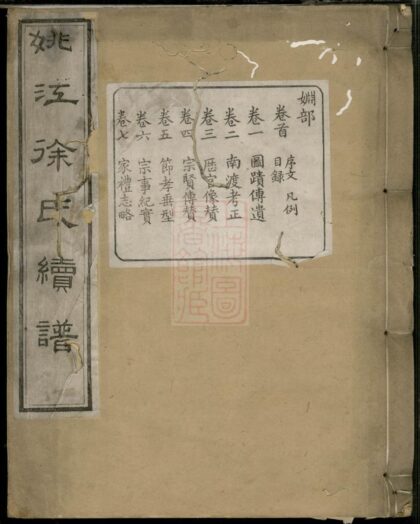 姚江徐氏續譜
婣部
卷首 序文 凡例 目録
卷一 圖蹟傳遺
卷二 南渡考正
卷三 厯官像贊
卷四 宗賢傳贊
卷五 節孝垂型
卷六 宗事紀實
卷七 家禮志略